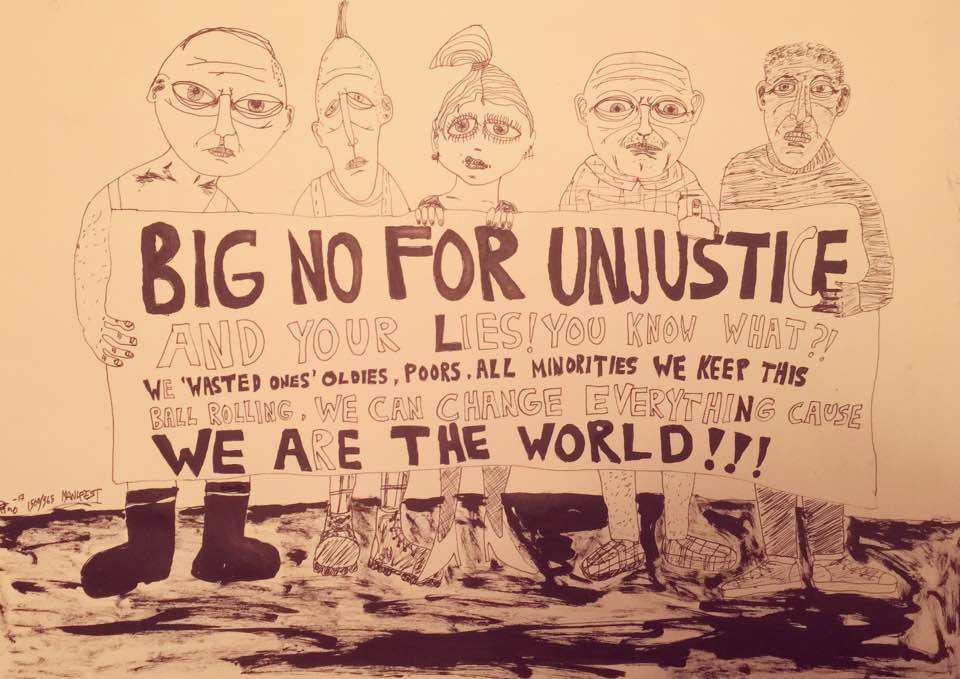 BIG NO FOR UNJUSTICE
AND YOUR LIES! YOU KNOW WHAT?!
WE 'WASTED ONES' OLDIES, POORS, ALL MINORITIES WE KEEP THIS
BALL ROLLING. WE CAN CHANGE EVERYTHING CAUSE
WE ARE THE WORLD!!!
-17
MANIFEST